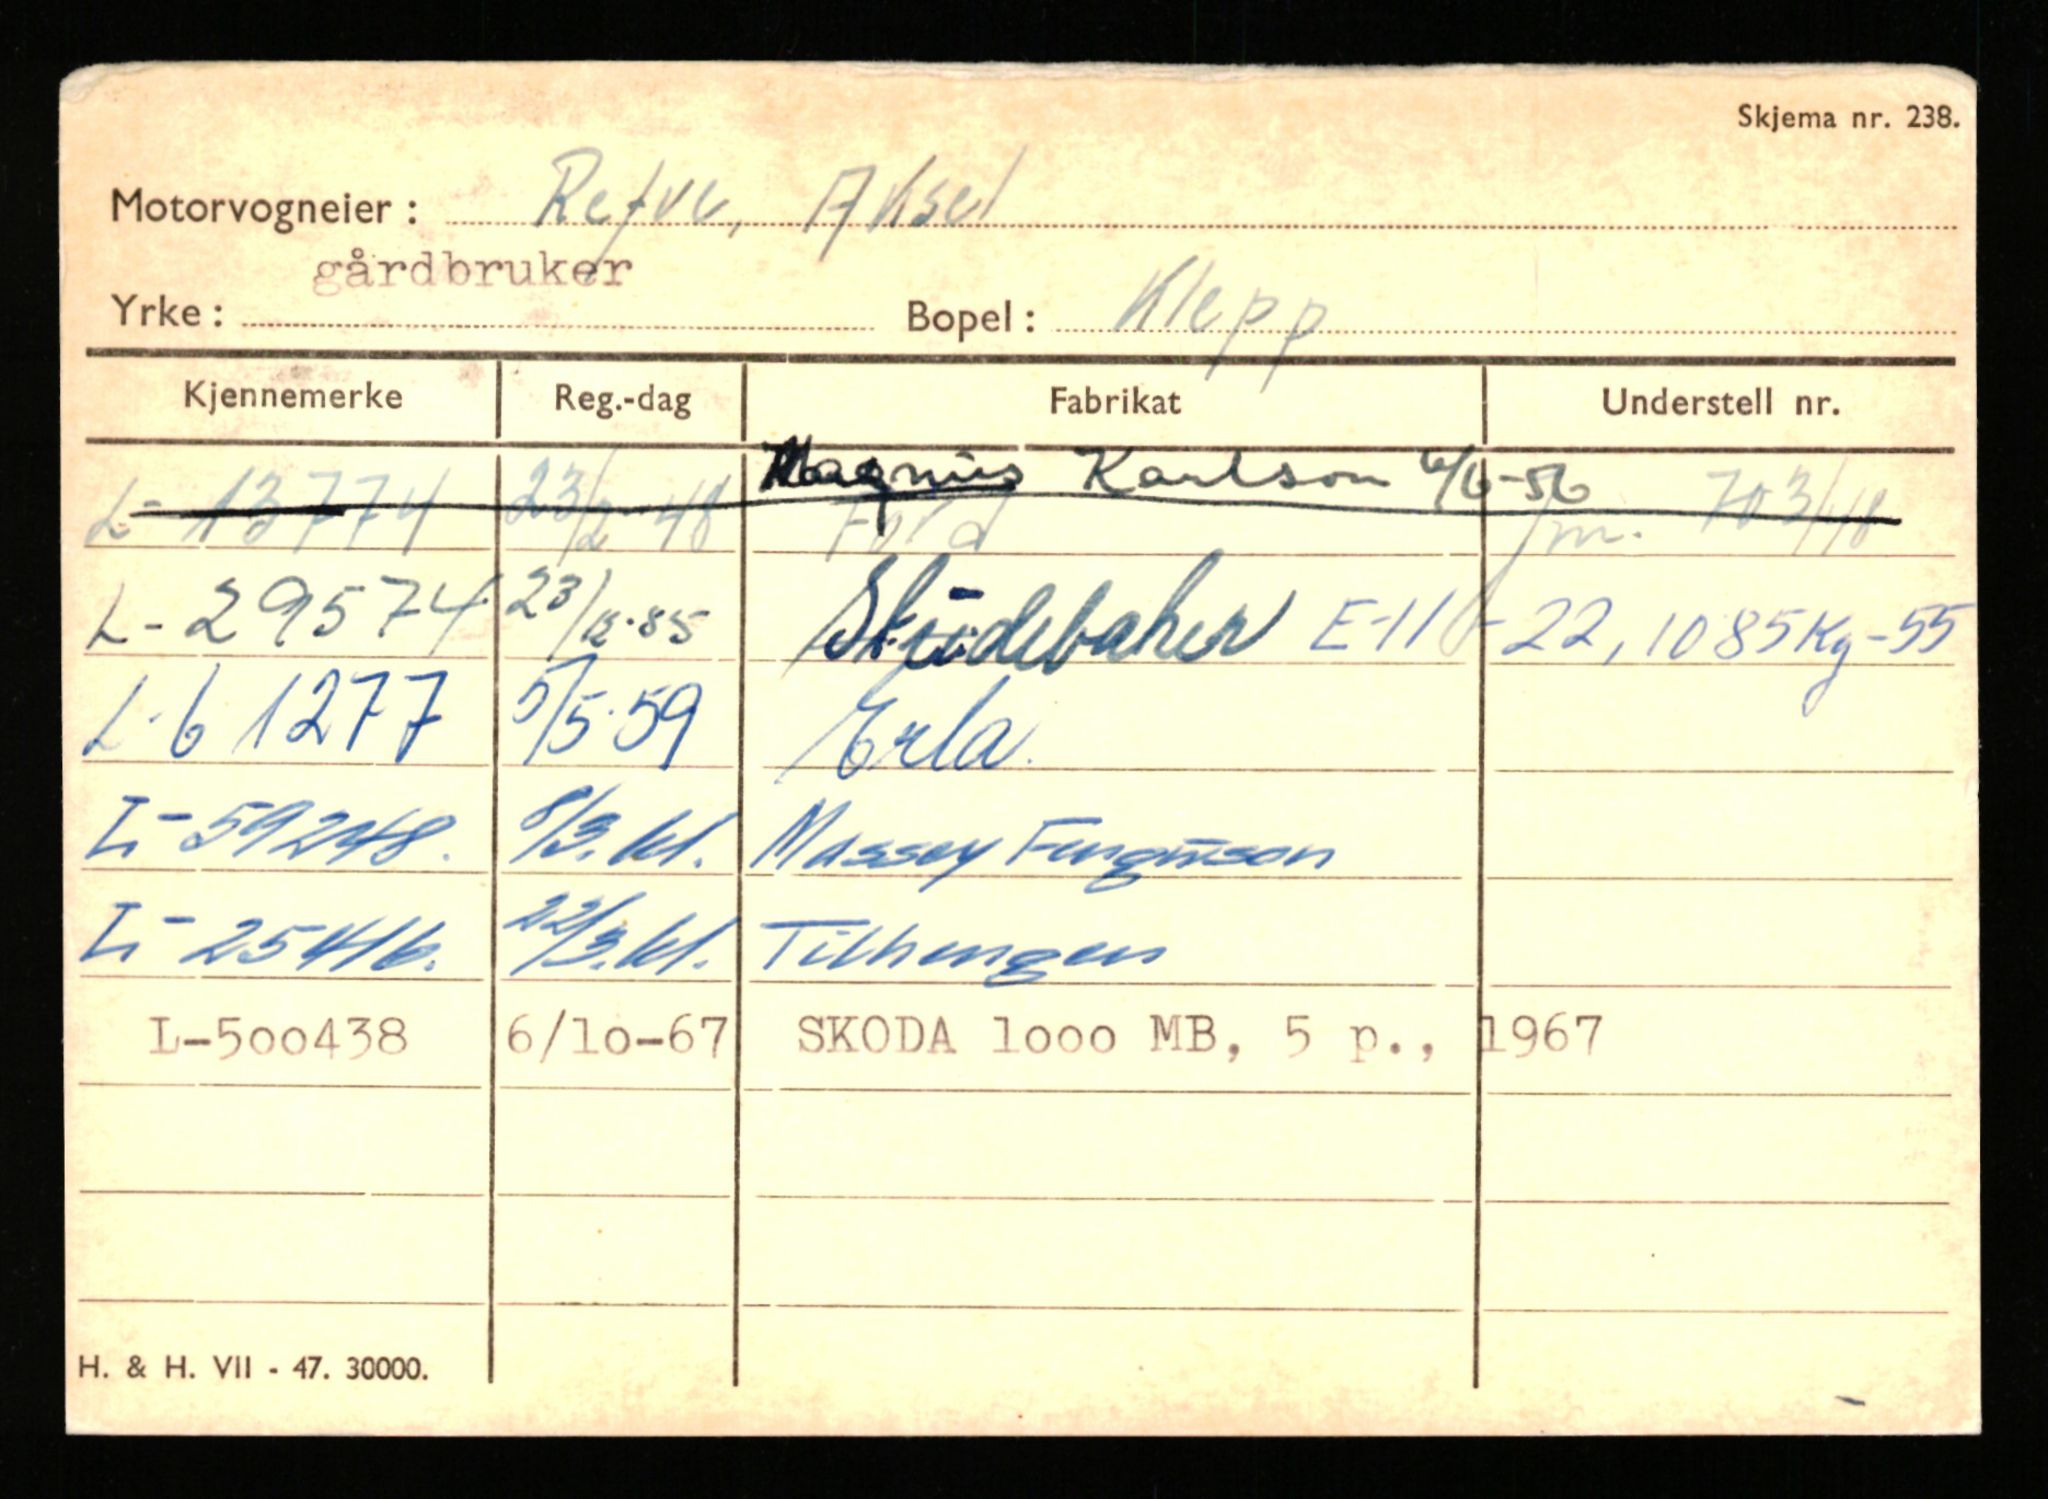 Skjema nr. 238.
Motorvogneier: Refve, Aksel
gårdbruker
Yrke: Bopel: Klepp
Kjennemerke Reg.-dag Fabrikat Understell nr.
Magnus Karlson 6/6-56
L-13774 23/2-48 Ford Jm. 703/48
L-29574 23/12.55 Studebaker E-11-22, 1085Kg-55
L-61277 5/5.59 Erla.
L-59248. 8/3.61. Massey Ferguson
L-25416. 22/3.61. Tilhenger
L-500438 6/10-67 SKODA 1000 MB, 5 p., 1967
H. & H. VII - 47. 30000.